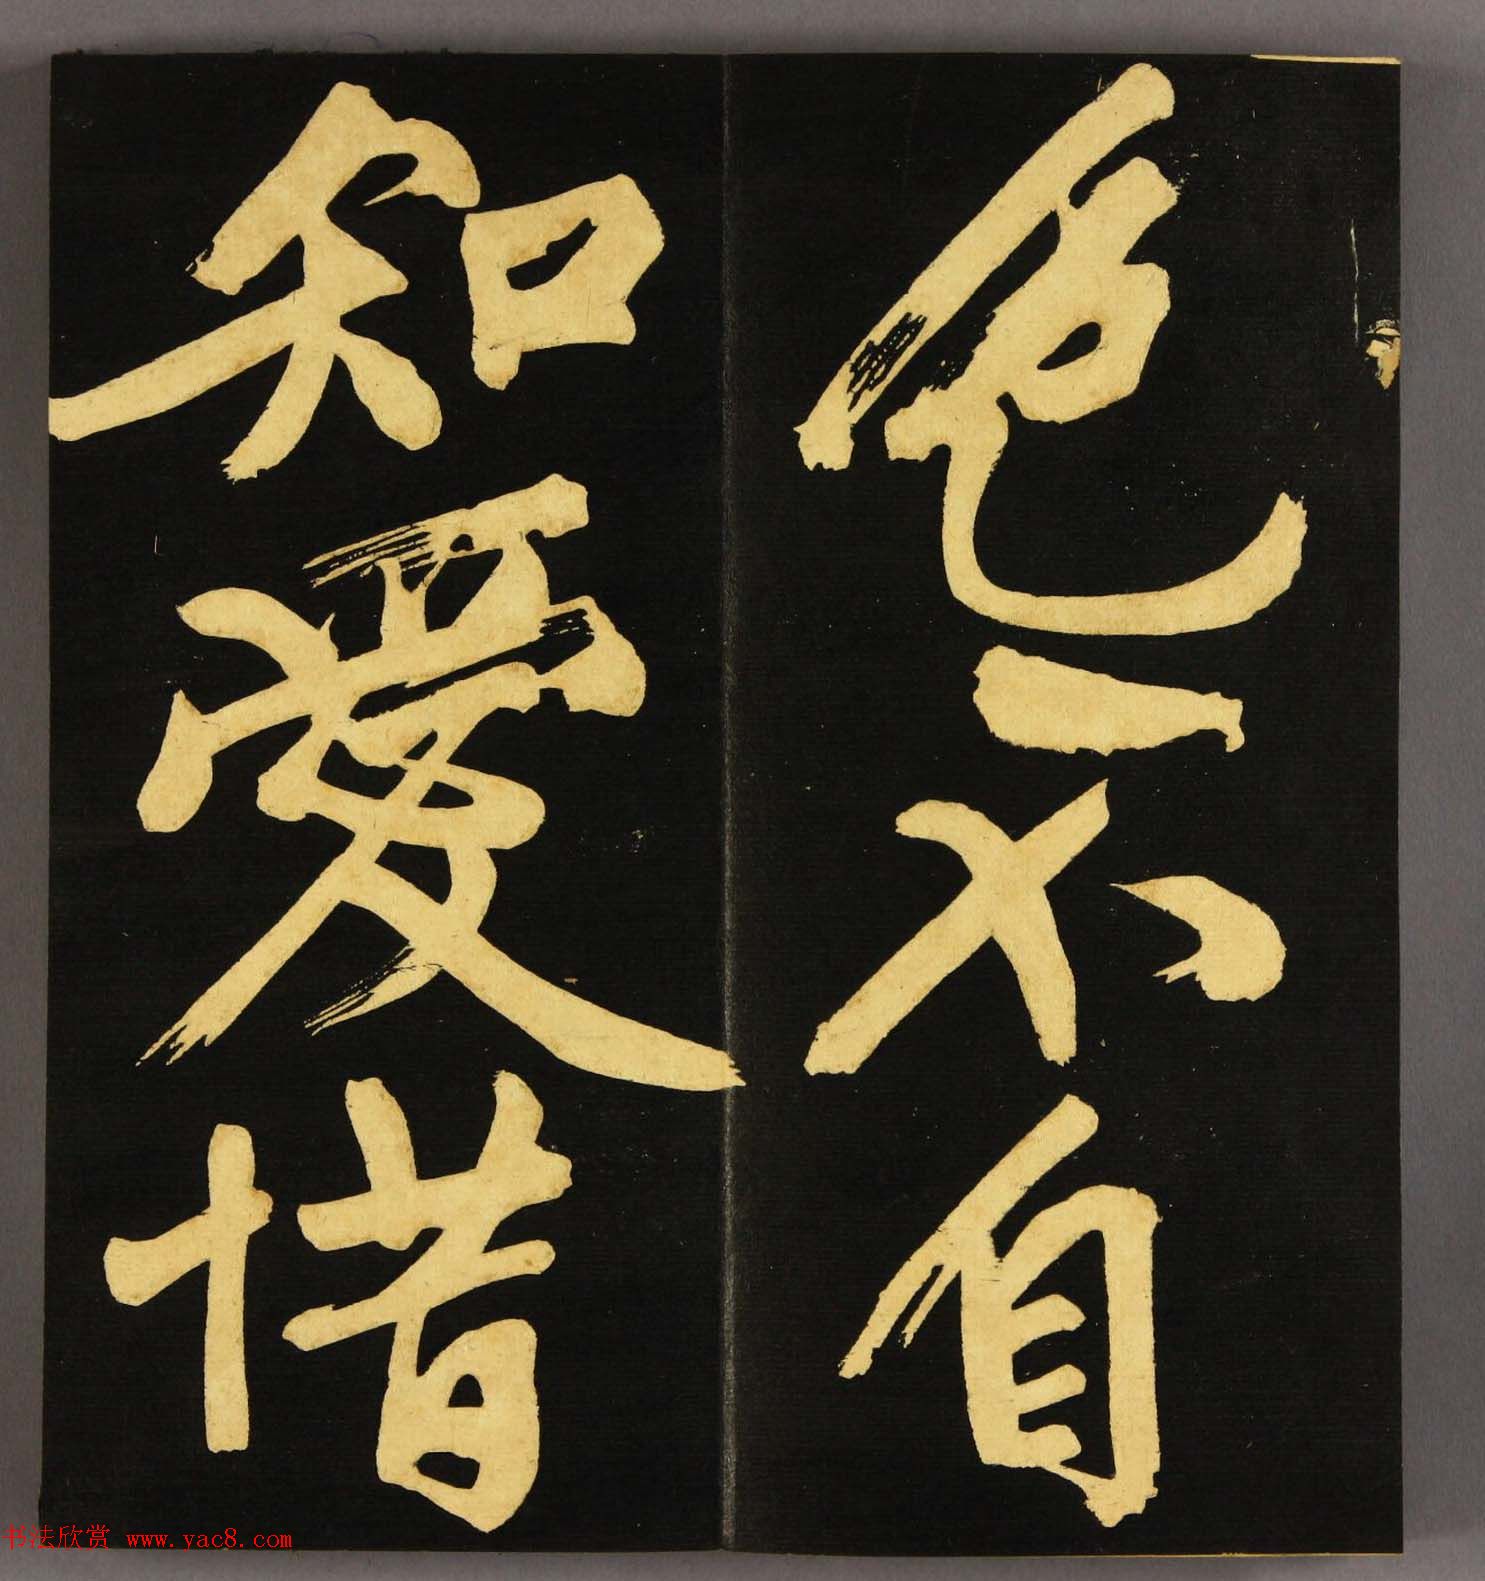 色不自
知爱惜
书法欣赏 www.yac8.com